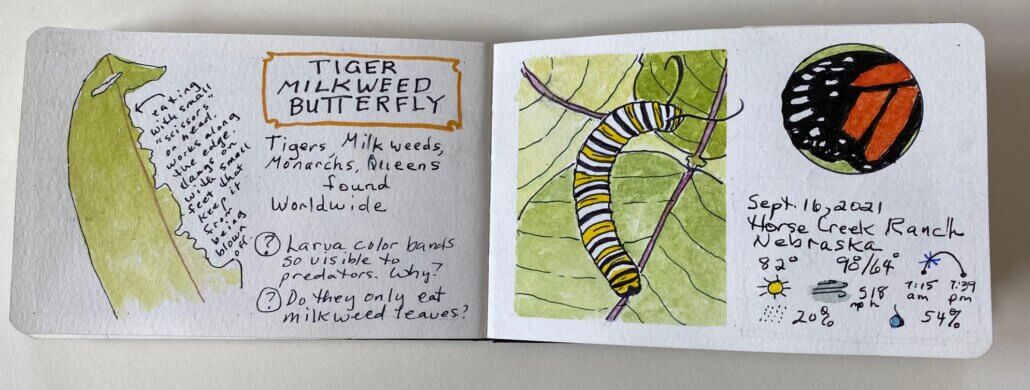 eating
with small
"scissors"
on head.
works along
the edge;
clangs on
with small
feet that
keep it
from
being
blown
off
TIGER
MILKWEED
BUTTERFLY
Tigers, Milkweeds,
Monarchs, Queens
found
Worldwide
? Larva color bands
so visible to
predators. Why?
? Do they only eat
milkweed leaves?
Sept. 16, 2021
Horse Creek Ranch
Nebraska
82° 90°/64°
S18
mph
7:15
am
7:39
pm
20% 54%